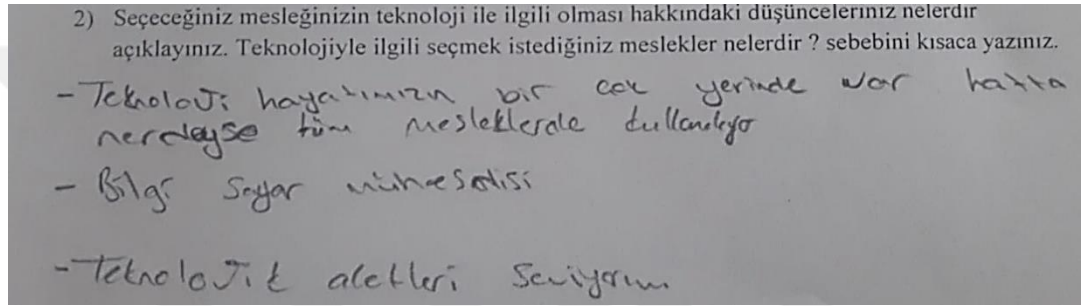 2) Seçeceğiniz mesleğinizin teknoloji ile ilgili olması hakkındaki düşünceleriniz nelerdir
açıklayınız. Teknolojiyle ilgili seçmek istediğiniz meslekler nelerdir ? sebebini kısaca yazınız.
- TeknoloJi hayatımızın bir çok yerinde var hatta
nerdeyse tüm mesleklerde kullanılıyo
- Bilgi sayar mühesdisi
- TeknoloJik aletleri seviyorum